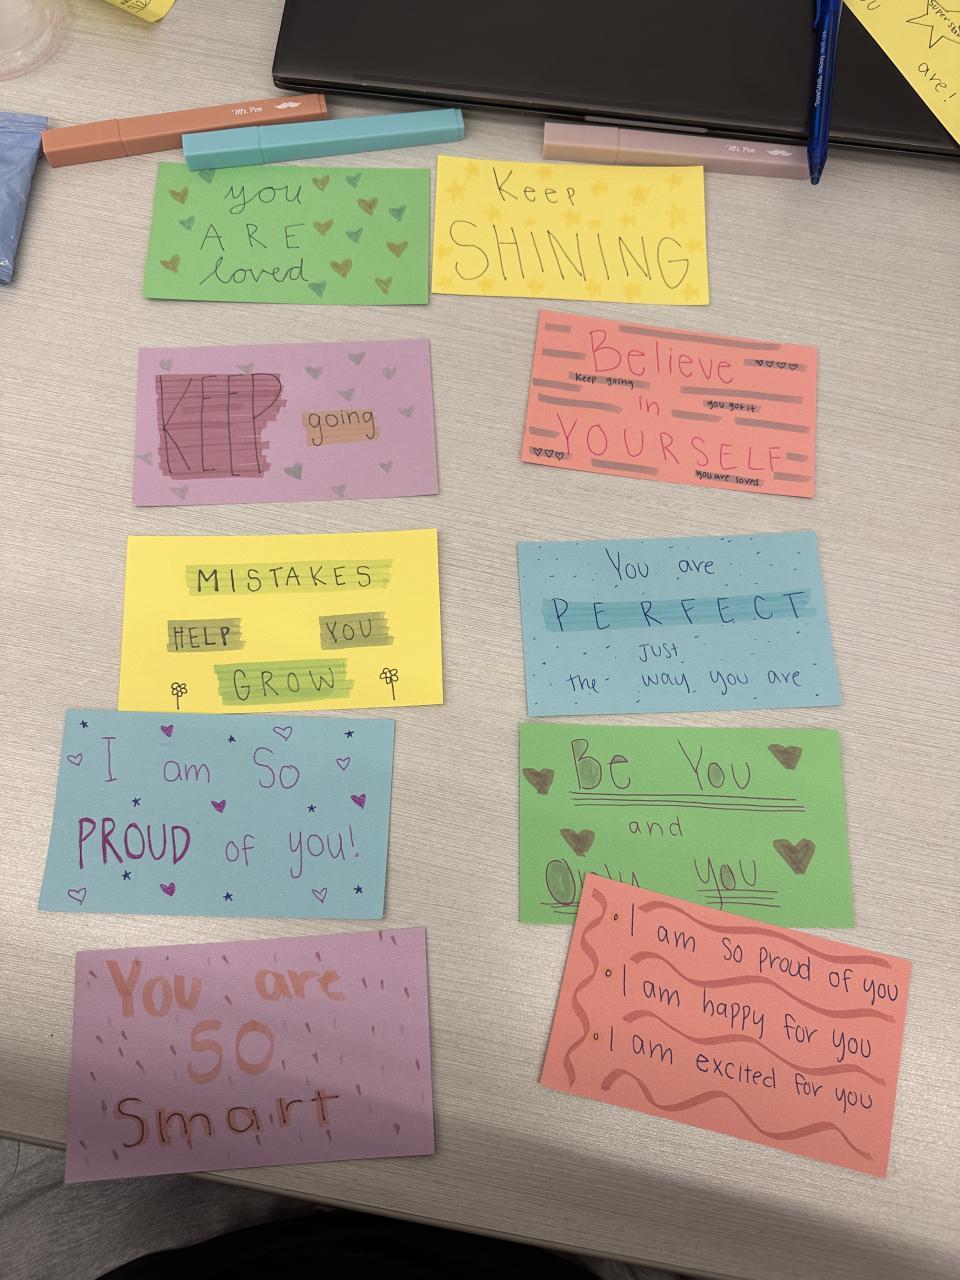 Super star
are!
Mr. Pen
Mr. Pen
you
ARE
loved
Keep
SHINING
KEEP going
Believe
Keep going
in
you got it
YOURSELF
you are loved
MISTAKES
HELP YOU
GROW
You are
PERFECT
Just
the way you are
I am So
PROUD of you!
Be You
and
Only you
You are
SO
Smart
I am so proud of you
I am happy for you
I am excited for you